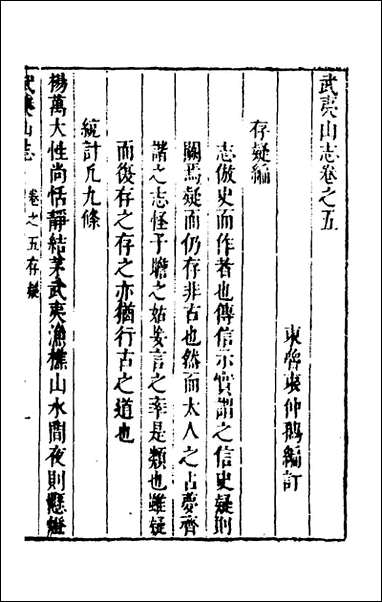 武夷山志卷之五
東魯衷仲孺編訂
存疑編
志倣史而作者也傳信示實謂之信史疑則
闕焉疑而仍存非古也然而太人之占夢齊
諧之志怪子瞻之姑妄言之率是類也雖疑
而復存之存之亦猶行古之道也
統計凡九條
楊萬大性尚恬靜結茅武夷漁樵山水間夜則懸燈
武夷山志
卷之五存疑
一